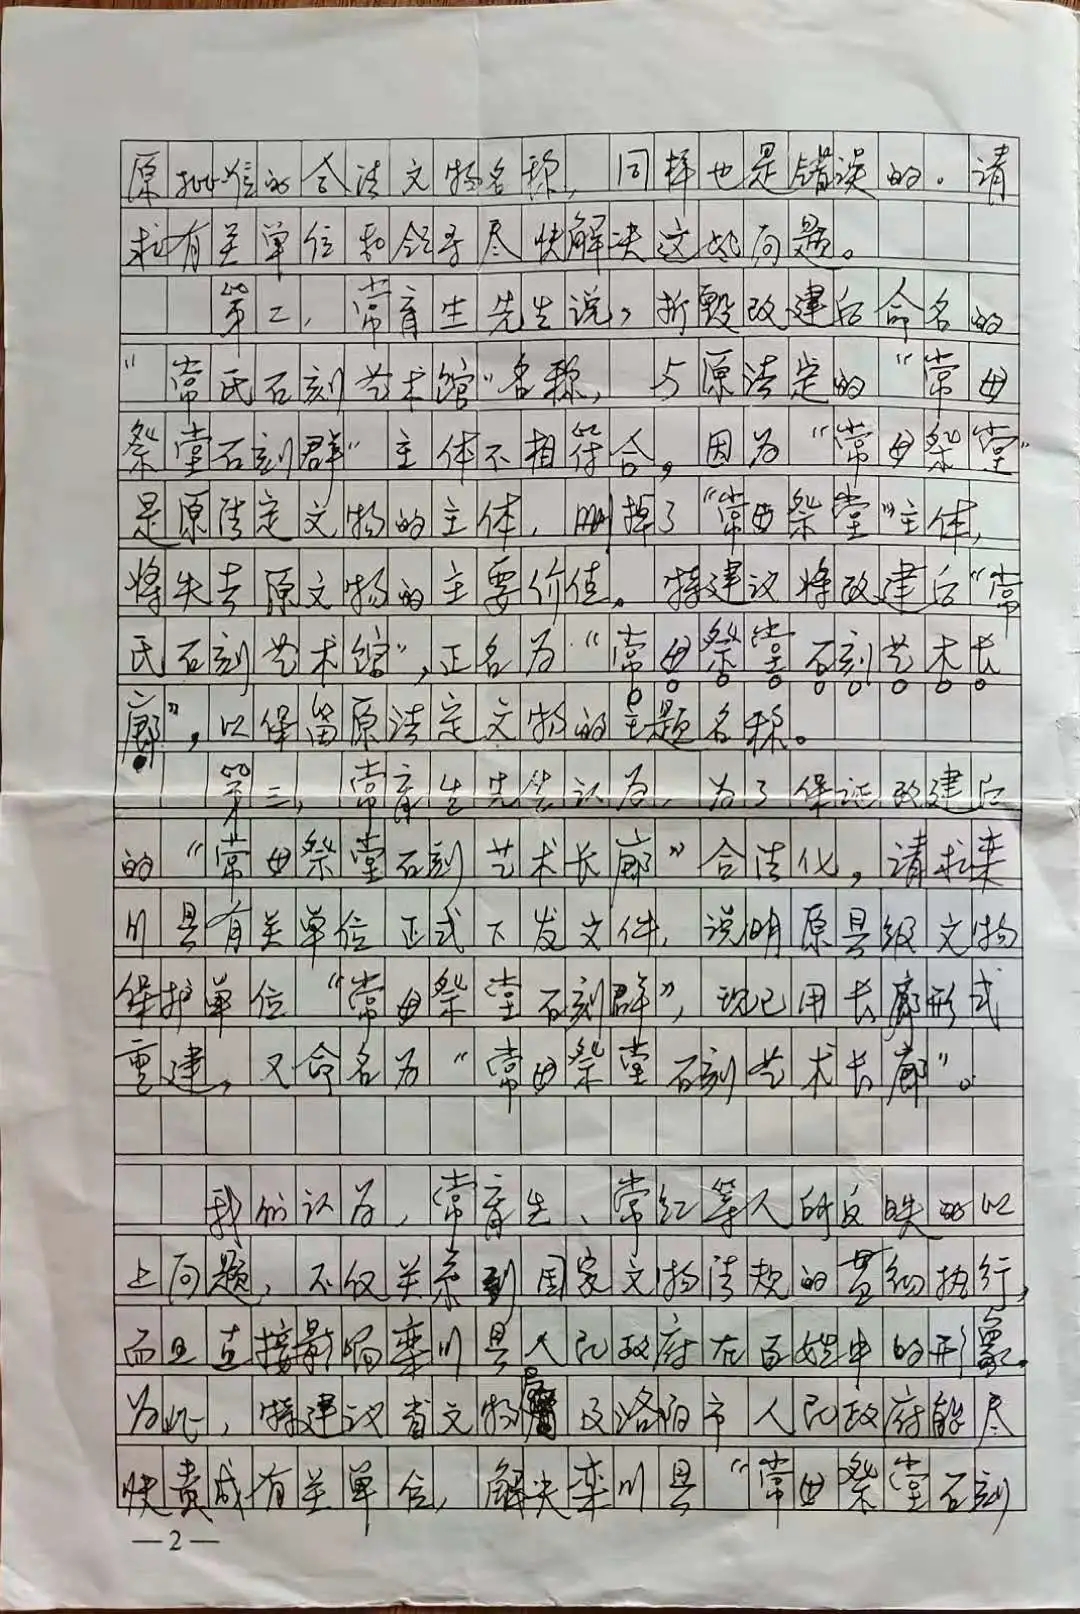 原批准的合法文物名称，同样也是错误的．请
求有关单位和领导尽快解决这些问题。
第二，常育生先生说，拆毁改建后命名的
“常氏石刻艺术馆”名称，与原法定的“常母
祭堂石刻群”主体不相符合，因为“常母祭堂”
是原法定文物的主体，删掉了“常母祭堂”主体，
将失去原文物的主要价值。特建议将改建后“常
氏石刻艺术馆”，正名为“常母祭堂石刻艺术长
廊”，以保留原法定文物的主题名称。
第三，常育生先生认为，为了保证改建后
的“常母祭堂石刻艺术长廊”合法化，请求栾
川县有关单位正式下发文件，说明原县级文物
保护单位“常母祭堂石刻群”，现已用长廊形式
重建，又命名为“常母祭堂石刻艺术长廊”。
我们认为，常育生、常红等人所反映的以
上问题，不仅关系到国家文物法规的贯彻执行，
而且直接影响栾川县人民政府在百姓中的形象。
为此，特建议省文物局及洛阳市人民政府能尽
快责成有关单位，解决栾川县“常母祭堂石刻
—2—